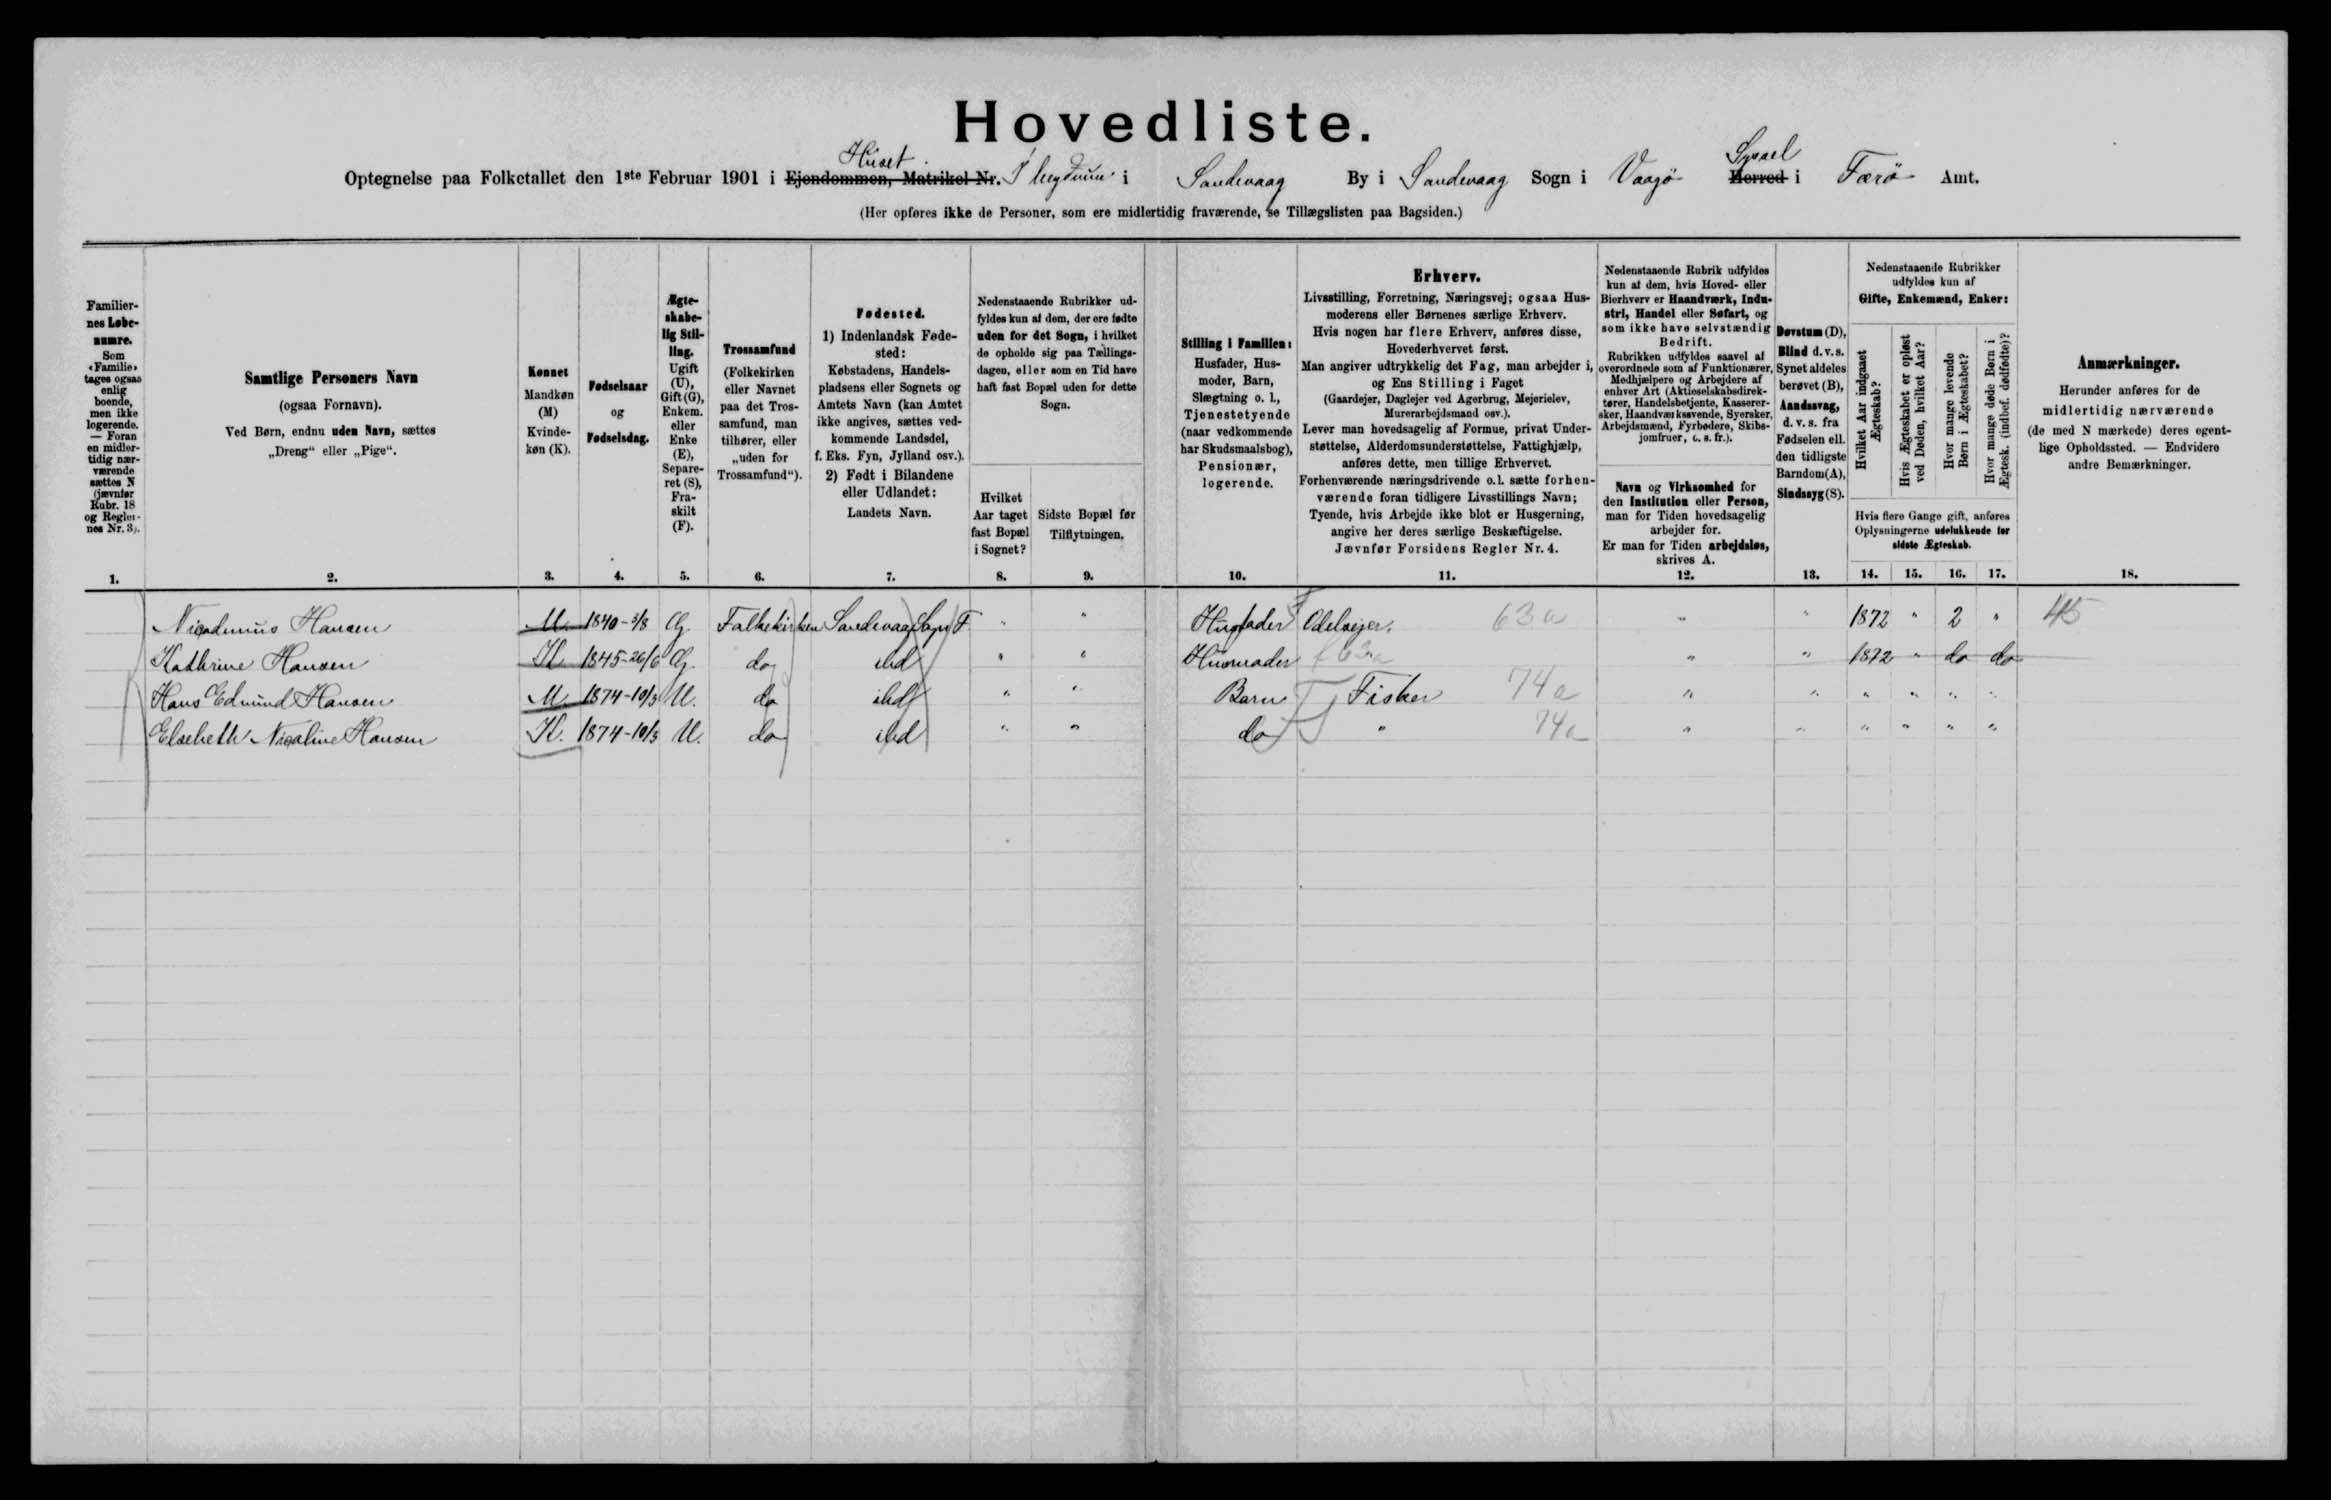 Hovedliste.
Huset Syssel
Optegnelse paa Folketallet den 1ste Februar 1901 i Ejendommen, Matrikel Nr. i Sandevaag By i Sandevaag Sogn i Vaagø Herred i Færø Amt.
(Her opføres ikke de Personer, som ere midlertidig fraværende, se Tillægslisten paa Bagsiden.)
Familier-
nes Løbe-
numre.
Som
«Familie»
tages ogsaa
enlig
boende,
men ikke
logerende.
— Foran
en midler-
tidig nær-
værende
sættes N
(jævnfør
Rubr. 18
og Regler-
nes Nr. 3).
1.
Samtlige Personers Navn
(ogsaa Fornavn).
Ved Børn, endnu uden Navn, sættes
„Dreng“ eller „Pige“.
2.
Kønnet
Mandkøn
(M)
Kvinde-
køn (K).
3.
Fødselsaar
og
Fødselsdag.
4.
Ægte-
skabe-
lig Stil-
ling.
Ugift
(U),
Gift (G),
Enkem.
eller
Enke
(E),
Separe-
ret (S),
Fra-
skilt
(F).
5.
Trossamfund
(Folkekirken
eller Navnet
paa det Tros-
samfund, man
tilhører, eller
„uden for
Trossamfund“).
6.
Fødested.
1) Indenlandsk Føde-
sted:
Købstadens, Handels-
pladsens eller Sognets og
Amtets Navn (kan Amtet
ikke angives, sættes ved-
kommende Landsdel,
f. Eks. Fyn, Jylland osv.).
2) Født i Bilandene
eller Udlandet:
Landets Navn.
7.
Nedenstaaende Rubrikker ud-
fyldes kun af dem, der ere fødte
uden for det Sogn, i hvilket
de opholde sig paa Tællings-
dagen, eller som en Tid have
haft fast Bopæl uden for dette
Sogn.
Hvilket
Aar taget
fast Bopæl
i Sognet?
8.
Sidste Bopæl før
Tilflytningen.
9.
Stilling i Familien:
Husfader, Hus-
moder, Barn,
Slægtning o. l.,
Tjenestetyende
(naar vedkommende
har Skudsmaalsbog),
Pensionær,
logerende.
10.
Erhverv.
Livsstilling, Forretning, Næringsvej; ogsaa Hus-
moderens eller Børnenes særlige Erhverv.
Hvis nogen har flere Erhverv, anføres disse,
Hovederhvervet først.
Man angiver udtrykkelig det Fag, man arbejder i,
og Ens Stilling i Faget
(Gaardejer, Daglejer ved Agerbrug, Mejerielev,
Murerarbejdsmand osv.).
Lever man hovedsagelig af Formue, privat Under-
støttelse, Alderdomsunderstøttelse, Fattighjælp,
anføres dette, men tillige Erhvervet.
Forhenværende næringsdrivende o.l. sætte forhen-
værende foran tidligere Livsstillings Navn;
Tyende, hvis Arbejde ikke blot er Husgerning,
angive her deres særlige Beskæftigelse.
Jævnfør Forsidens Regler Nr. 4.
11.
Nedenstaaende Rubrik udfyldes
kun af dem, hvis Hoved- eller
Bierhverv er Haandværk, Indu-
stri, Handel eller Søfart, og
som ikke have selvstændig
Bedrift.
Rubrikken udfyldes saavel af
overordnede som af Funktionærer,
Medhjælpere og Arbejdere af
enhver Art (Aktieselskabsdirek-
tører, Handelsbetjente, Kasserer-
sker, Haandværkssvende, Syersker,
Arbejdsmænd, Fyrbødere, Skibs-
jomfruer, o. s. fr.).
Navn og Virksomhed for
den Institution eller Person,
man for Tiden hovedsagelig
arbejder for.
Er man for Tiden arbejdsløs,
skrives A.
12.
Døvstum (D),
Blind d. v. s.
Synet aldeles
berøvet (B),
Aandssvag,
d. v. s. fra
Fødselen ell.
den tidligste
Barndom (A),
Sindssyg (S).
13.
Nedenstaaende Rubrikker
udfyldes kun af
Gifte, Enkemænd, Enker:
Hvilket Aar indgaaet
Ægteskab?
Hvis Ægteskabet er opløst
ved Døden, hvilket Aar?
Hvor mange levende
Børn i Ægteskabet?
Hvor mange døde Børn i
Ægtesk. (indbef. dødfødte)?
Hvis flere Gange gift, anføres
Oplysningerne udelukkende for
sidste Ægteskab.
14. 15. 16. 17.
Anmærkninger.
Herunder anføres for de
midlertidig nærværende
(de med N mærkede) deres egent-
lige Opholdssted. — Endvidere
andre Bemærkninger.
18.
Nicodemus Hansen M. 1840-3/8 G. Folkekirken Sandevaag Sogn F " " Husfader Odelsejer. 63 a " " 1872 " 2 " 45
Kathrine Hansen K. 1845-26/6 G. do ibd " " Husmoder f 63a " " 1872 " do do
Hans Edmund Hansen M. 1874-10/3 U. do ibd " " Barn Fisker 74a " " " " " "
Elsebeth Nicoline Hansen K. 1874-10/3 U. do ibd " " do " 74a " " " " " "